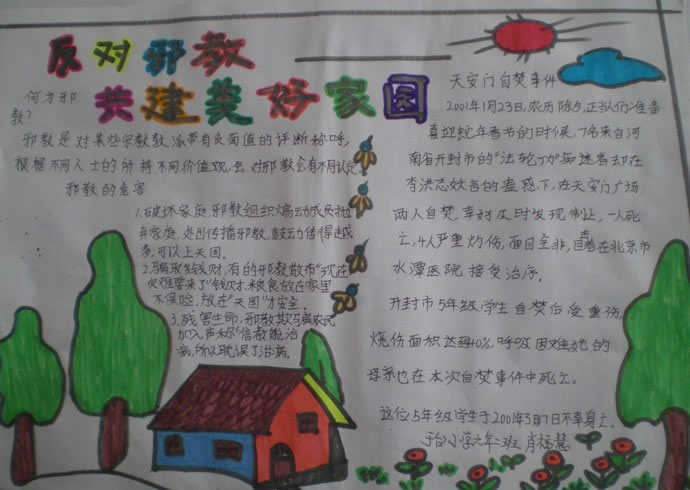 反对邪教
共建美好家园
何为邪
教?
邪教是对某些宗教教派带有负面值的评断称呼,
根据不同人士的所持不同价值观,会对邪教会有不同认定
邪教的危害
1.破坏家庭.邪教组织煽动成员抛
弃家庭,走出传播邪教.鼓动传得越
多,可以上天国.
2.骗取钱财,有的邪教散布"现在
灾难要来了"钱财、粮食放在家里
不保险,放在"天国"才安全.
3.残害生命,邪教欺骗农民
加入声称"信教能治
病,所以耽误了治病.
天安门自焚事件
2001年1月23日,农历除夕,正当人们准备
喜迎蛇年春节的时候,7名来自河
南省开封市的"法轮功"痴迷者却在
李洪志妖言的蛊惑下,在天安门广场
两人自焚,幸好及时发现制止,一人死
亡,4人严重灼伤,面目全非,目前在北京市
水潭医院接受治疗.
开封市5年级学生自焚后受重伤,
烧伤面积达40%,呼吸困难她的
母亲也在本次自焚事件中死亡.
这位5年级学生于2001年3月17日不幸身亡.
小学六年二班 肖福慧